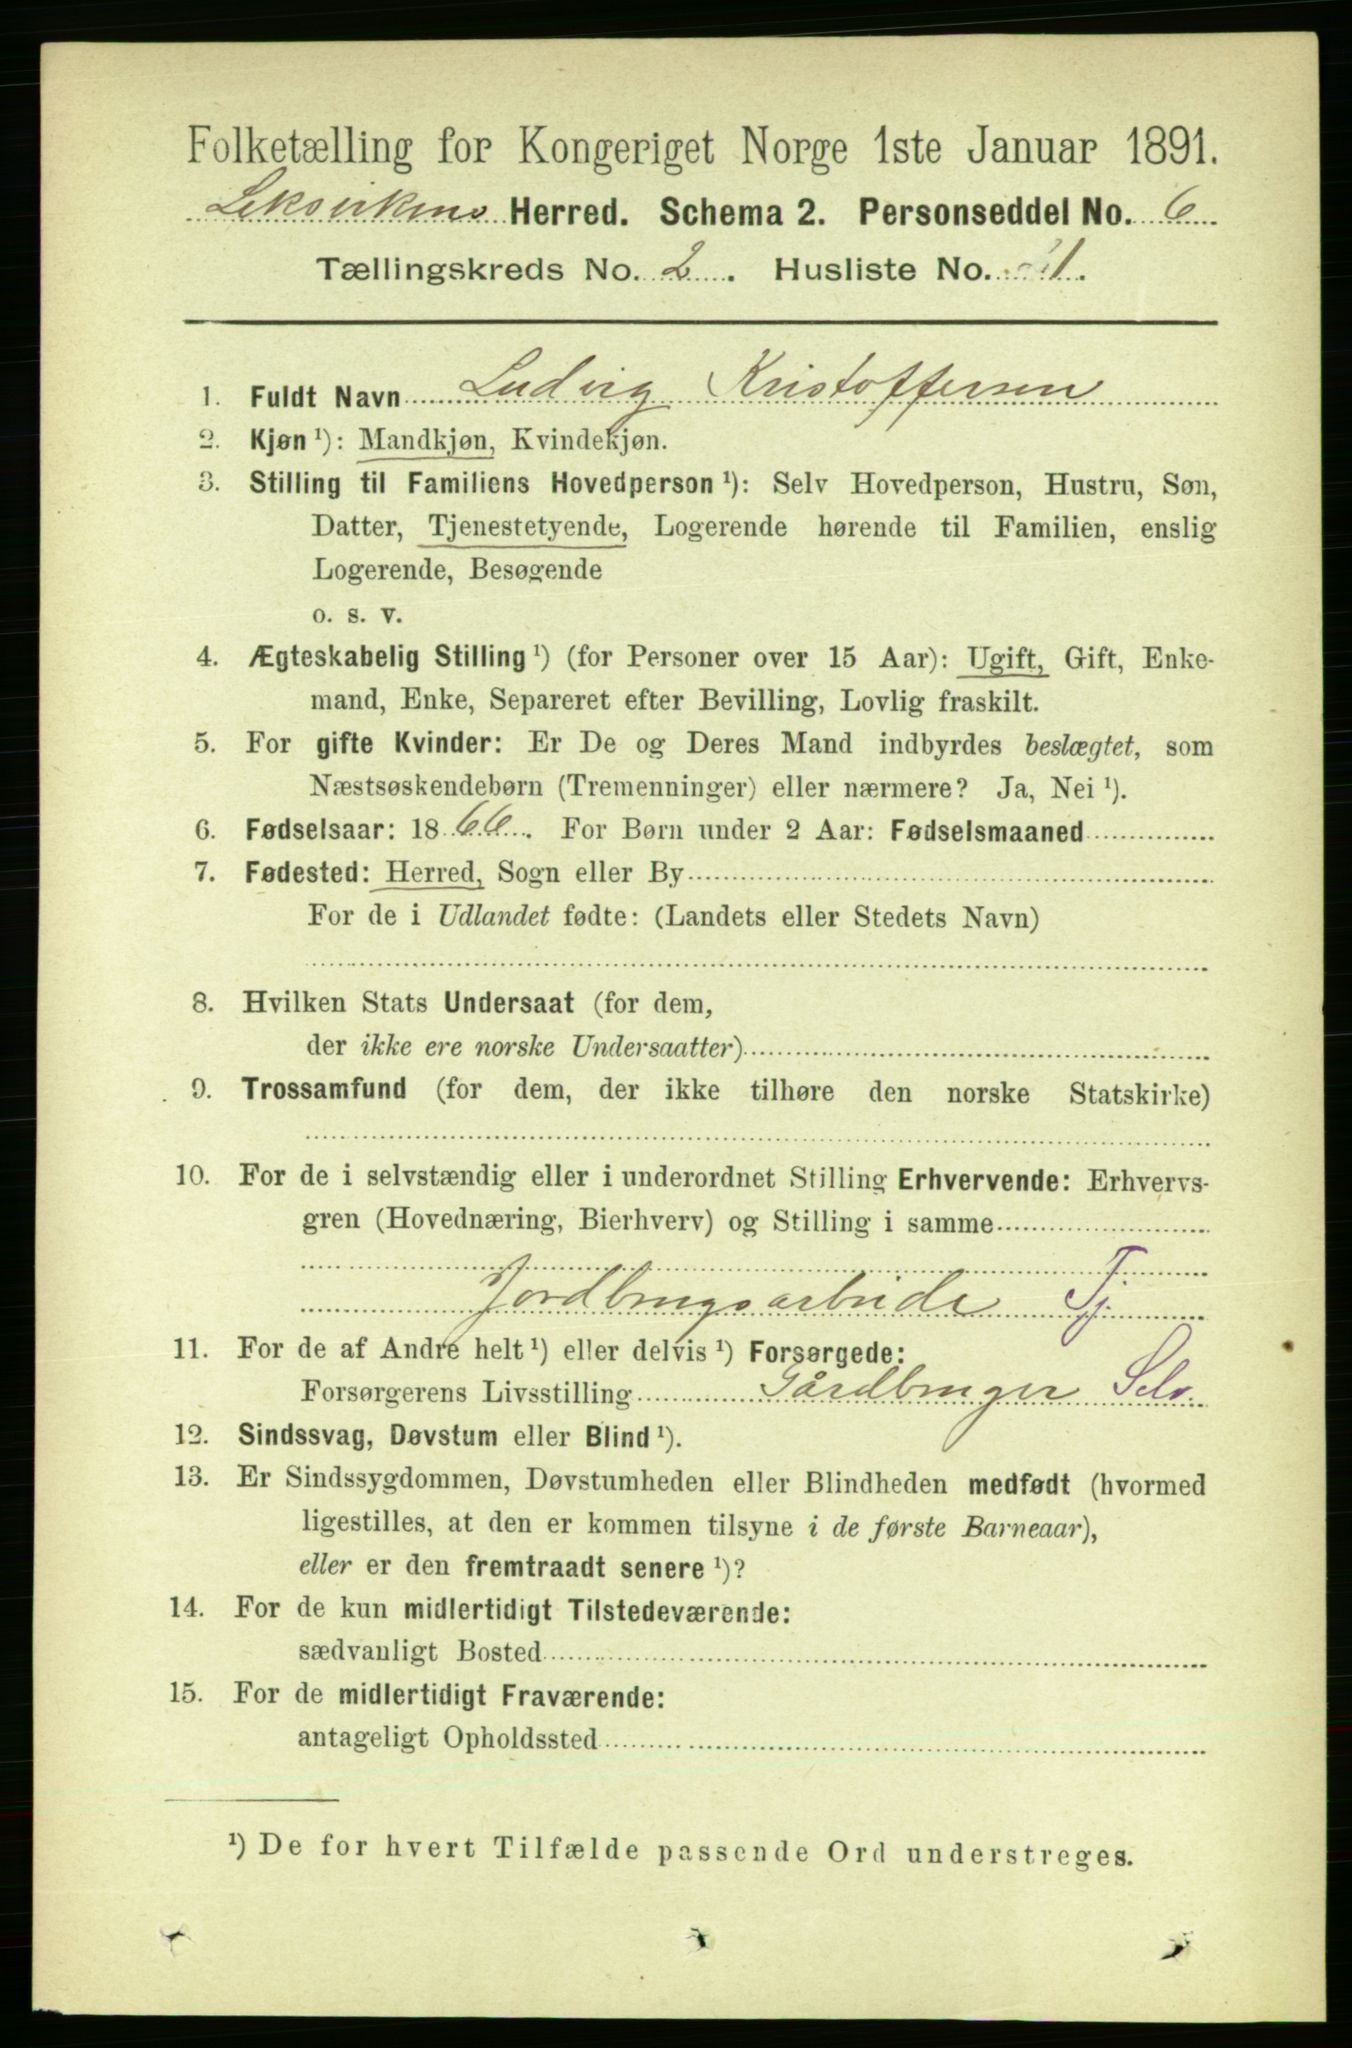 Folketælling for Kongeriget Norge 1ste Januar 1891.
Leksvikens Herred. Schema 2. Personseddel No. 6
Tællingskreds No. 2. Husliste No.
1. Fuldt Navn Ludvig Kristoffersen
2. Kjøn ¹): Mandkjøn, Kvindekjøn.
3. Stilling til Familiens Hovedperson ¹): Selv Hovedperson, Hustru, Søn,
Datter, Tjenestetyende, Logerende hørende til Familien, enslig
Logerende, Besøgende
o. s. v.
4. Ægteskabelig Stilling ¹) (for Personer over 15 Aar): Ugift, Gift, Enke-
mand, Enke, Separeret efter Bevilling, Lovlig fraskilt.
5. For gifte Kvinder: Er De og Deres Mand indbyrdes beslægtet, som
Næstsøskendebørn (Tremenninger) eller nærmere? Ja, Nei ¹).
6. Fødselsaar: 1866. For Børn under 2 Aar: Fødselsmaaned
7. Fødested: Herred, Sogn eller By
For de i Udlandet fødte: (Landets eller Stedets Navn)
8. Hvilken Stats Undersaat (for dem,
der ikke ere norske Undersaatter)
9. Trossamfund (for dem, der ikke tilhøre den norske Statskirke)
10. For de i selvstændig eller i underordnet Stilling Erhvervende: Erhvervs-
gren (Hovednæring, Bierhverv) og Stilling i samme
Jordbrugsarbeide Tj.
11. For de af Andre helt ¹) eller delvis ¹) Forsørgede:
Forsørgerens Livsstilling Gårdbruger Selv.
12. Sindssvag, Døvstum eller Blind ¹).
13. Er Sindssygdommen, Døvstumheden eller Blindheden medfødt (hvormed
ligestilles, at den er kommen tilsyne i de første Barneaar),
eller er den fremtraadt senere ¹)?
14. For de kun midlertidigt Tilstedeværende:
sædvanligt Bosted
15. For de midlertidigt Fraværende:
antageligt Opholdssted
¹) De for hvert Tilfælde passende Ord understreges.